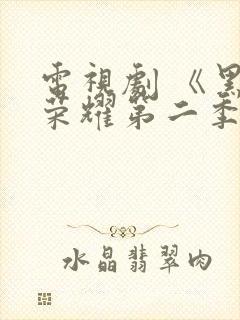 電視劇《黑
榮耀第二季
水晶翡翠肉